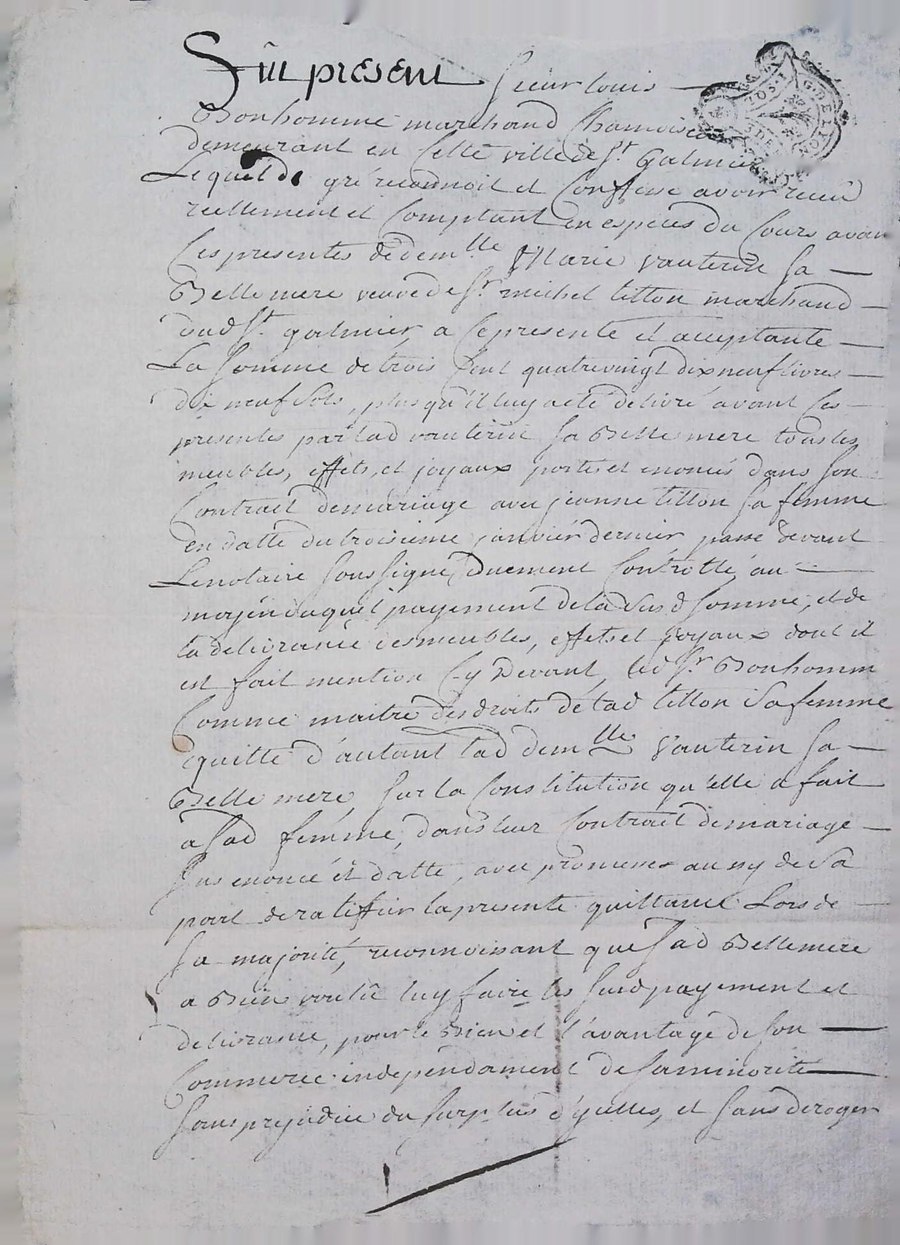 Fut present Sieur louis
Bonhomme marchand Chamoiseur
demeurant en Cette ville de St. Galmier
Lequel de gré reconnoit et Confesse avoir receu
reellement et Comptant en especes du Cours avan
Ces presentes de demlle Marie vauterin sa
Belle mere veuve de Sr. michel titton marchand
dud St. galmier, a Ce presente et acceptante
La somme de trois Cent quatrevingt dix neuf livres
dix neuf sols, plus qu'il luy a eté delivré avant Ces
presentes par lad vauterin sa Belle mere tous les
meubles, effets, et joyaux portés et enoncés dans son
Contrait de mariage avec jeanne titton sa femme
en datte du troisieme janvier dernier passé devant
Le notaire soussigné, duement Controllé, au
moyen duquel payement de la susd somme, et de
la delivrance des meubles, effets et joyaux dont il
est fait mention Cy devant, led Sr. Bonhomm
Comme maitre des droits de lad titton Sa femme
quitte d'autant lad demlle Vauterin sa
Belle mere, sur la Constitution qu'elle a fait
a sad femme, dans leur Contrait de mariage
sus enoncé et datté, avec promesse au sy de sa
part de ratiffier la presente quittance Lors de
sa majorité, reconnoissant que sad Belle mere
a Bien voulu luy faire les susd payement et
delivrance, pour le Bien et l'avantage de son
Commerce independament de sa minorité
sans prejudice du surplus d'ycelles, et sans deroger